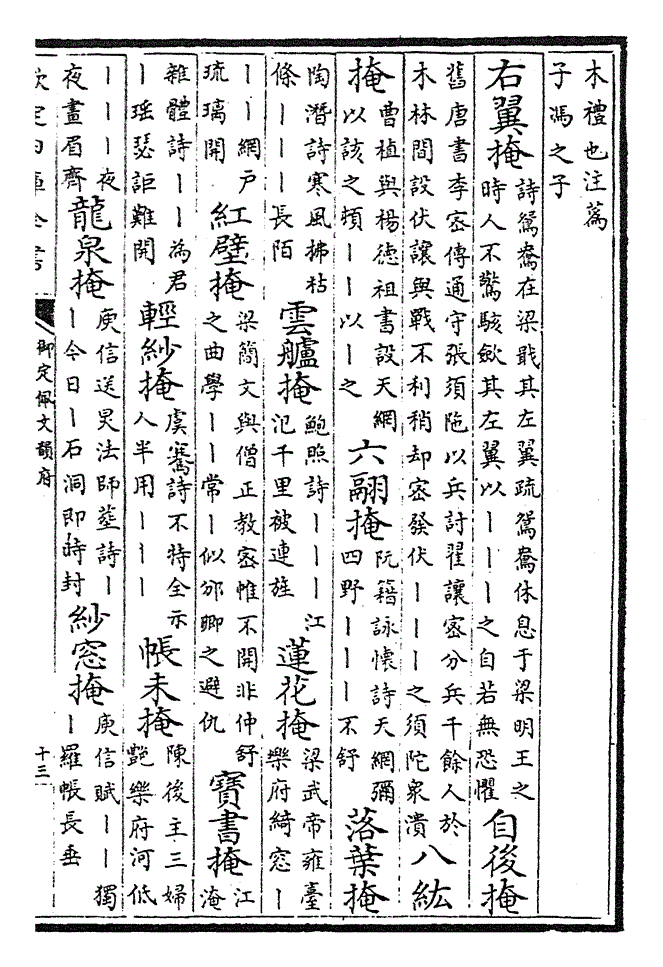 木禮也注蔿
子馮之子
右翼掩
詩鴛鴦在梁戢其左翼疏鴛鴦休息于梁明王之
時人不驚駭歛其左翼以丨丨丨之自若無恐懼
自後掩
舊唐書李宻傳通守張須陁以兵討翟讓宻分兵千餘人於
木林間設伏讓與戰不利稍却宻發伏丨丨丨之須陀衆潰
八紘
掩
曹植與楊徳祖書設天網
以該之頓丨丨以丨之
六翮掩
阮籍詠懷詩天網彌
四野丨丨丨不舒
落葉掩
陶潛詩寒風拂枯
條丨丨丨長陌
雲艫掩
鮑照詩丨丨丨江
汜千里被連旌
蓮花掩
梁武帝雍臺
樂府綺窓丨
丨丨網户
琉璃開
紅壁掩
梁簡文與僧正教宻惟不開非仲舒
之曲學丨丨常丨似邠卿之避仇
寶書掩
江
淹
雜體詩丨丨為君
丨瑶瑟詎難開
輕紗掩
虞騫詩不特全示
人半用丨丨丨
帳未掩
陳後主三婦
艶樂府河低
丨丨丨夜
夜畫眉齊
龍泉掩
庾信送炅法師塟詩丨
丨今日丨石洞即時封
紗窓掩
庾信賦丨丨獨
丨羅帳長垂
欽定四庫全書
御定佩文韻府
十三